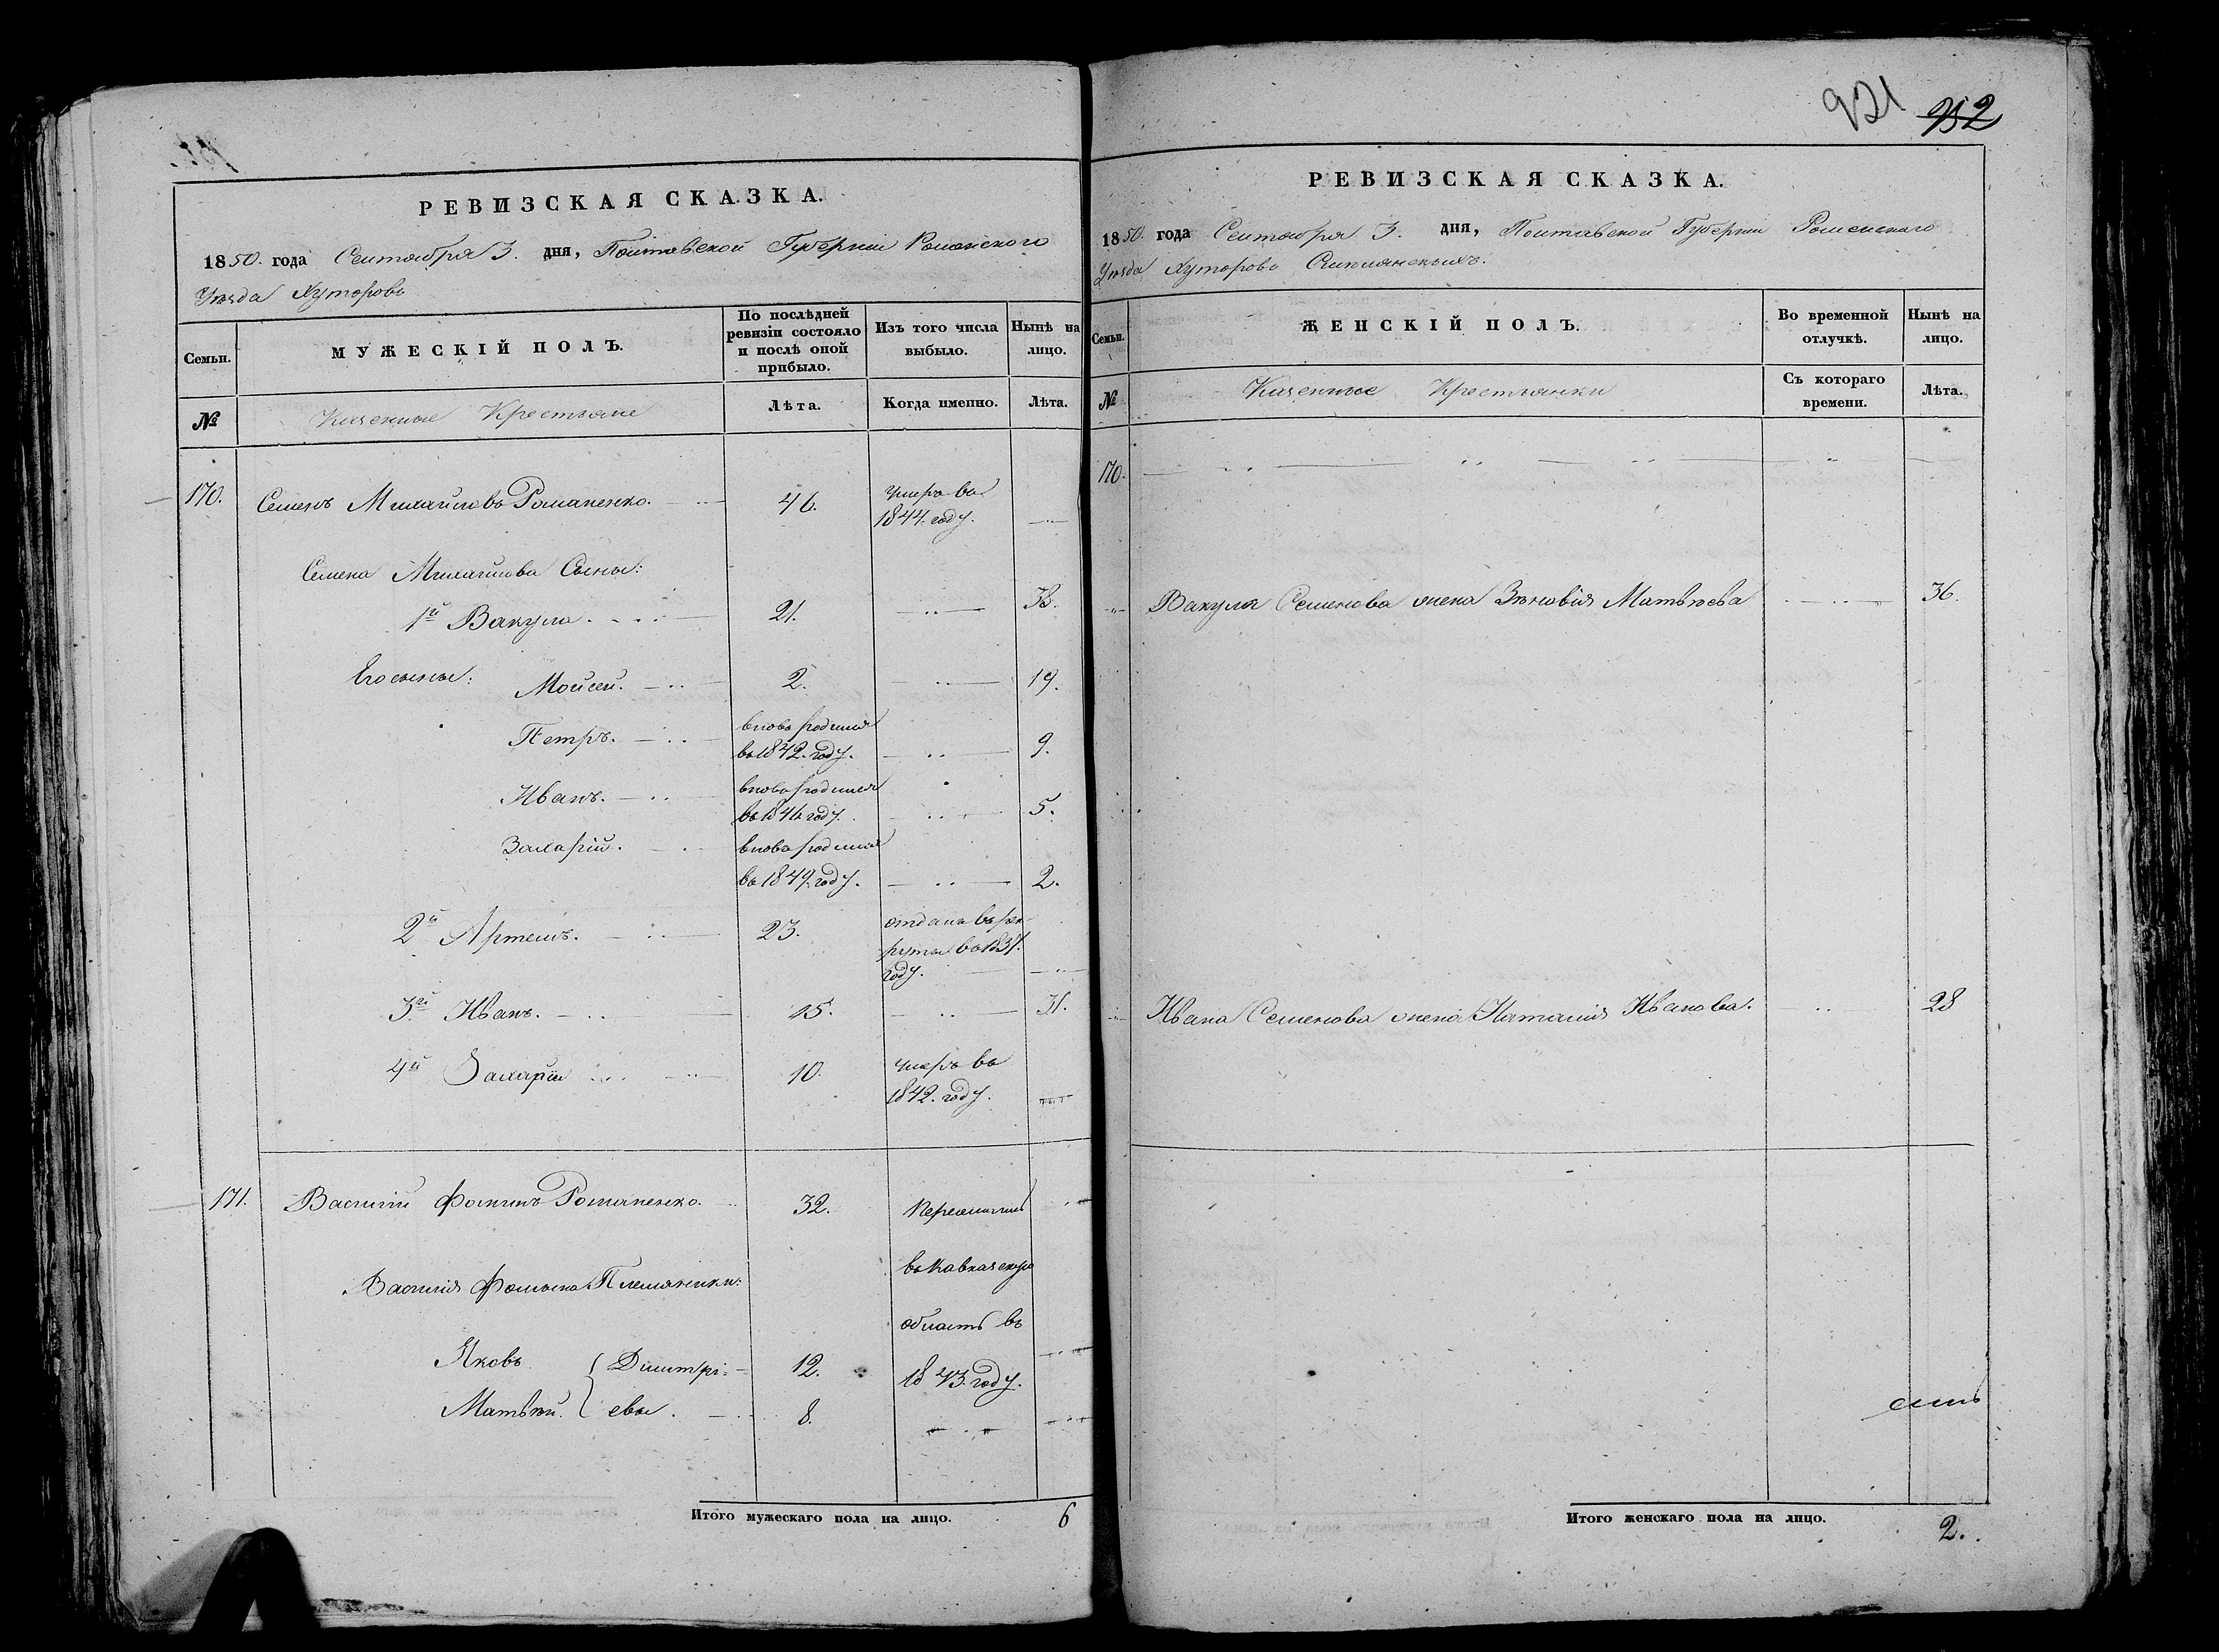 РЕВИЗСКАЯ СКАЗКА.
1850. года Сентября 3. дня, Полтавской Губерніи Роменского
Уѣзда Хуторовъ
Семьи.
МУЖЕСКІЙ ПОЛЪ.
По послѣдней ревизіи состояло и послѣ оной прибыло.
Изъ того числа выбыло.
Нынѣ на лицо.
№
Казенные Крестьяне
Лѣта.
Когда именно.
Лѣта.
170. Семенъ Михайловъ Романенко. 46. умеръ въ
1844. году.
Семена Михайлова Сыны:
1й Вакула. 21.
Его сыны: Мойсей. 2. 19.
Петръ. вновь родился
въ 1842. году. 9.
Иванъ. вновь родился
въ 1846 году. 5.
Захарій. вновь родился
въ 1849 году. 2.
2й Артемъ. 23. отданъ въ рек-
руты въ
году.
3й Иванъ. 15. 31.
4й Захарій 10. умеръ въ
1842. году.
171. Василій Фоминъ Романенко. 32. Переселился
Василія Фомина Племянники: въ Кавказскую
область въ
Яковъ Димитрі- 12. 1843. году.
Матвѣй. евы. 8.
Итого мужескаго пола на лицо. 6
921 952
РЕВИЗСКАЯ СКАЗКА.
1850. года Сентября 3. дня, Полтавской Губерніи Роменскаго
Уѣзда Хуторовъ
Семьи.
ЖЕНСКІЙ ПОЛЪ.
Во временной отлучкѣ.
Нынѣ на лицо.
№
Казенные Крестьянки
Съ котораго времени.
Лѣта.
170.
Вакула Семенова жена Зѣновія Матвѣева 36.
Ивана Семенова жена Наталія Иванова. 28
Итого женскаго пола на лицо. 2.